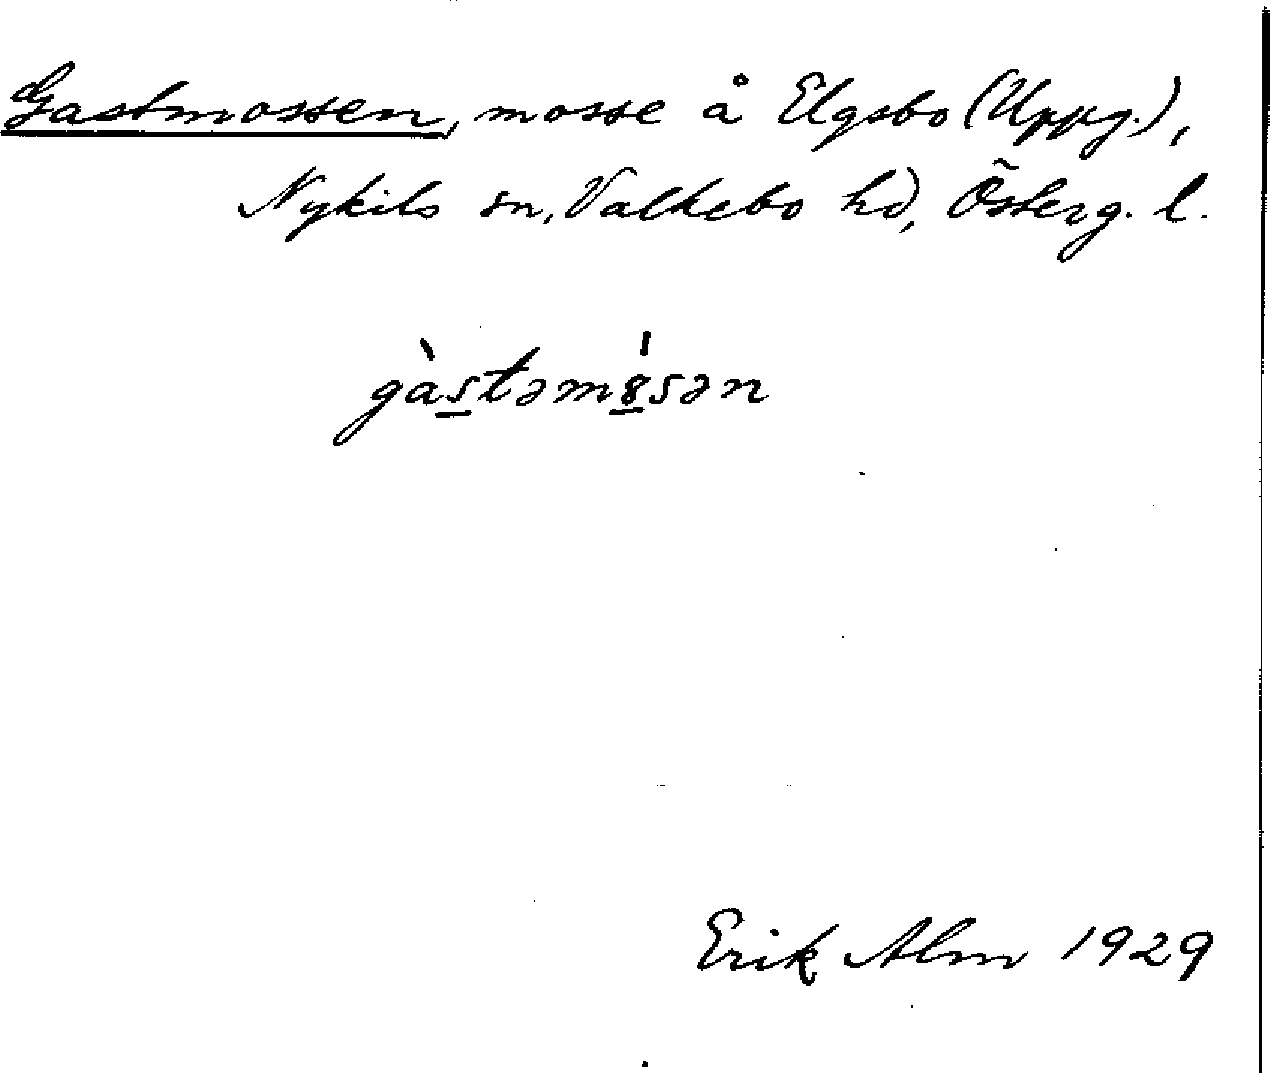 Gastmossen, mosse å Elgsbo (Uppg.),
Nykils sn, Valkebo hd, Österg. l.
gàstəmȣ́sən
Erik Alm 1929